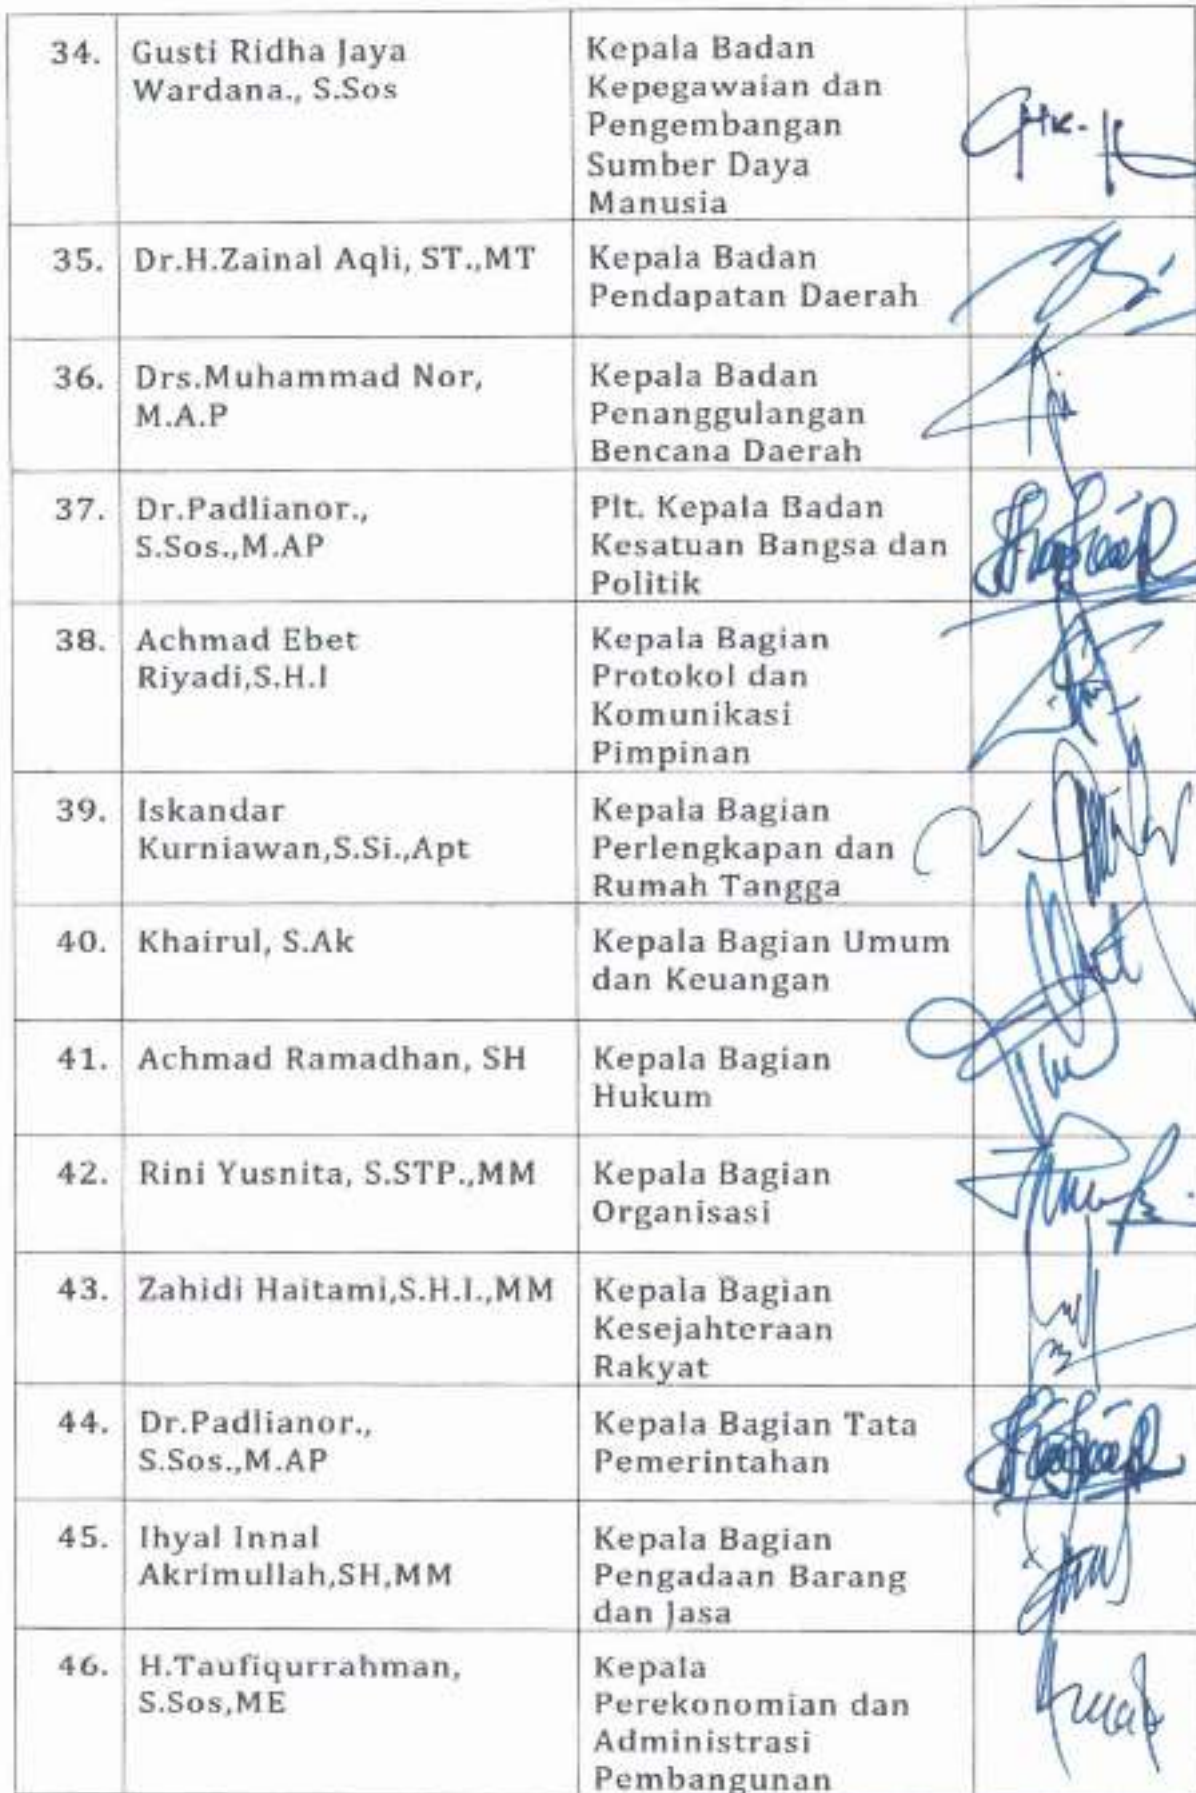 34. Gusti Ridha Jaya
Wardana., S.Sos
Kepala Badan
Kepegawaian dan
Pengembangan
Sumber Daya
Manusia
35. Dr.H.Zainal Aqli, ST.,MT
Kepala Badan
Pendapatan Daerah
36. Drs.Muhammad Nor,
M.A.P
Kepala Badan
Penanggulangan
Bencana Daerah
37. Dr.Padlianor.,
S.Sos.,M.AP
Plt. Kepala Badan
Kesatuan Bangsa dan
Politik
38. Achmad Ebet
Riyadi,S.H.I
Kepala Bagian
Protokol dan
Komunikasi
Pimpinan
39. Iskandar
Kurniawan,S.Si.,Apt
Kepala Bagian
Perlengkapan dan
Rumah Tangga
40. Khairul, S.Ak
Kepala Bagian Umum
dan Keuangan
41. Achmad Ramadhan, SH
Kepala Bagian
Hukum
42. Rini Yusnita, S.STP.,MM
Kepala Bagian
Organisasi
43. Zahidi Haitami,S.H.I.,MM
Kepala Bagian
Kesejahteraan
Rakyat
44. Dr.Padlianor.,
S.Sos.,M.AP
Kepala Bagian Tata
Pemerintahan
45. Ihyal Innal
Akrimullah,SH,MM
Kepala Bagian
Pengadaan Barang
dan Jasa
46. H.Taufiqurrahman,
S.Sos,ME
Kepala
Perekonomian dan
Administrasi
Pembangunan